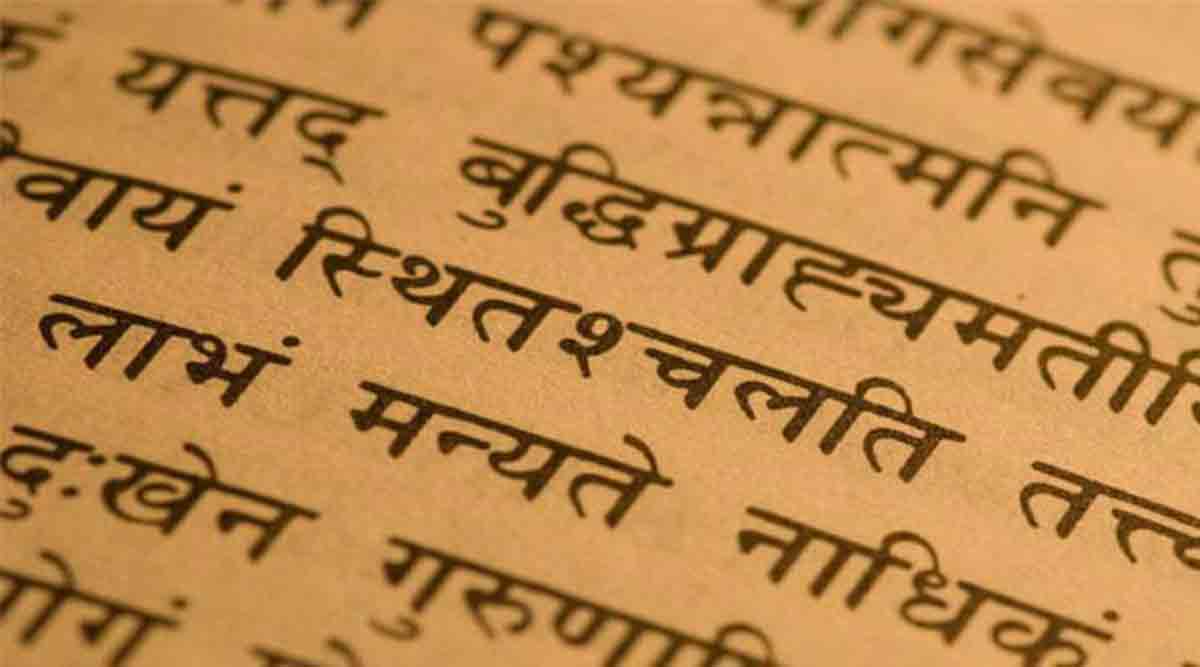 योगसेवय
पश्यन्नात्मनि तु
यत्तद् बुद्धिग्राह्यमती
वायं स्थितश्चलति तत्त्व
लाभं मन्यते नाधिकं
दुःखेन गुरुणापि
योगं